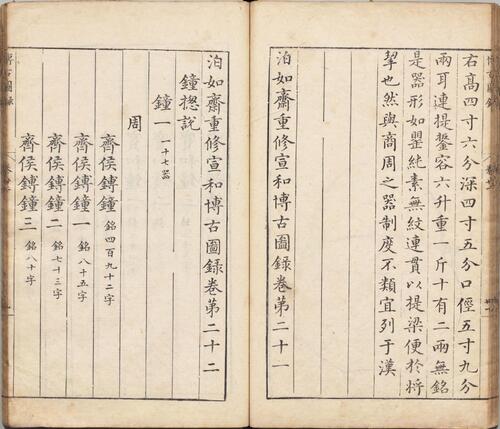 右高四寸六分深四寸五分口徑五寸九分
兩耳連提鋬容六升重一斤十有二兩無銘
是器形如罌純素無紋連貫以提梁便於將
挈也然與商周之器制度不類宜列于漢
泊如齋重修宣和博古圖錄卷第二十一
泊如齋重修宣和博古圖錄卷第二十二
鐘摠說
鐘一 一十七器
周
齊侯鎛鐘 銘四百九十二字
齊侯鎛鐘一 銘八十五字
齊侯鎛鐘二 銘七十三字
齊侯鎛鐘三 銘八十字